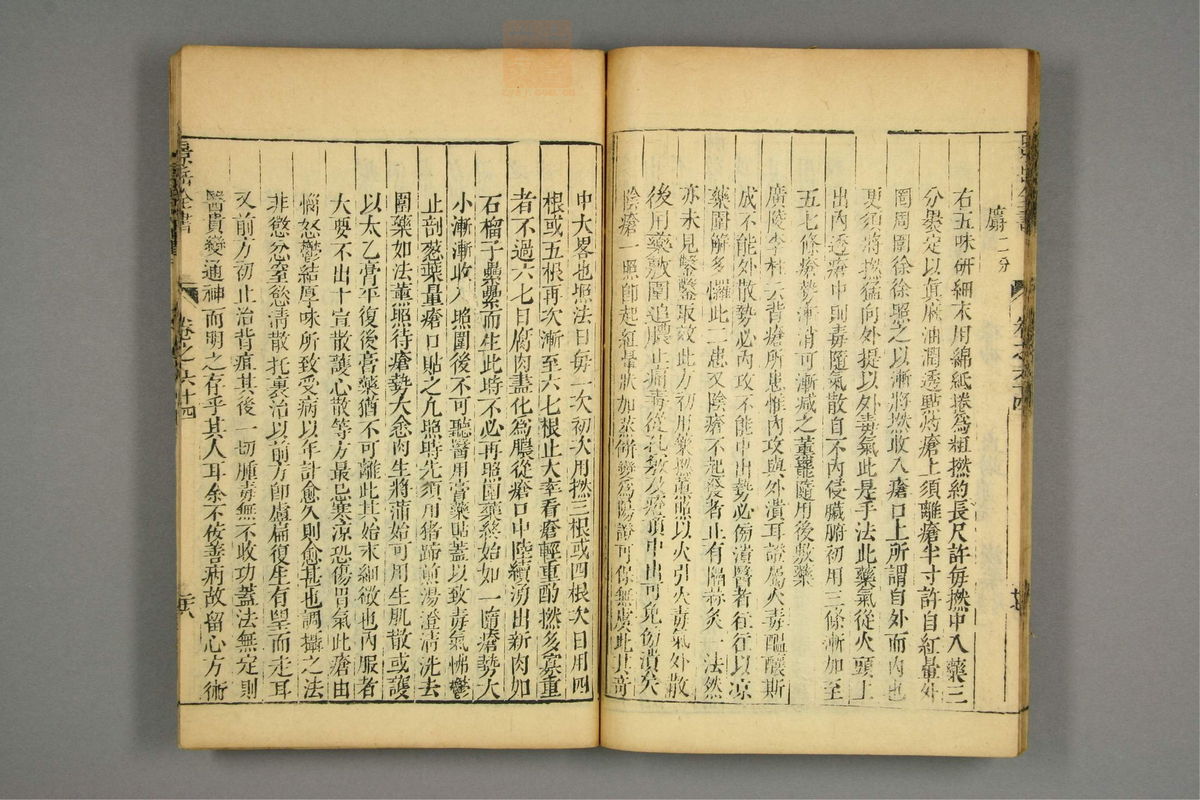 麝二分
右五味研細末用綿紙捲為粗撚約長尺許每撚中入藥三
分裹定以真麻油潤透點灼瘡上須離瘡半寸許自紅暈外
圈周圍徐徐照之以漸將撚收入瘡口上所謂自外而內也
更須將撚猛向外提以外毒氣此是手法此藥氣從火頭上
出內透瘡中則毒隨氣散自不內侵臟腑初用三條漸加至
五七條瘡勢漸消可漸減之薰罷隨用後敷藥
廣陵李杜云背瘡所患惟內攻與外潰耳證屬火毒醞釀斯
成不能外散勢必內攻不能中出勢必傍潰醫者往往以凉
藥圍解多罹此二患又陰瘡不起發者止有隔蒜灸一法然
亦未見鑿鑿取效此方初用藥撚薰照以火引火毒氣外散
後用藥敷圍追膿止痛毒從孔竅及瘡頂中出可免傍潰矣
陰瘡一照即起紅暈狀如蒸餅變為陽證可保無虞此其奇
中大畧也照法曰每一次初次用撚三根或四根次日用四
根或五根再次漸至六七根止大率看瘡輕重酌撚多寡重
者不過六七日腐肉盡化為膿從瘡口中陸續湧出新肉如
石榴子纍纍而生此時不必再照圍藥終始如一隨瘡勢大
小漸漸收入照圍後不可聽醫用膏藥貼蓋以致毒氣怫鬱
止剖葱葉量瘡口貼之凢照時先須用猪蹄煎湯澄清洗去
圍藥如法薰照待瘡勢大愈肉生將滿始可用生肌散或護
以太乙膏平復後膏藥猶不可離此其始末細微也內服者
大要不出十宣散護心散等方最忌寒涼恐傷胃氣此瘡由
惱怒鬱結厚味所致受病以年計愈久則愈甚也調攝之法
非懲忿窒慾清散托裏治以前方即盧扁復生有望而走耳
又前方初止治背疽其後一切腫毒無不收功蓋法無定則
醫貴變通神而明之存乎其人耳余不佞善病故留心方術
景岳全書
卷之六十四
景岳全書
卷之六十四